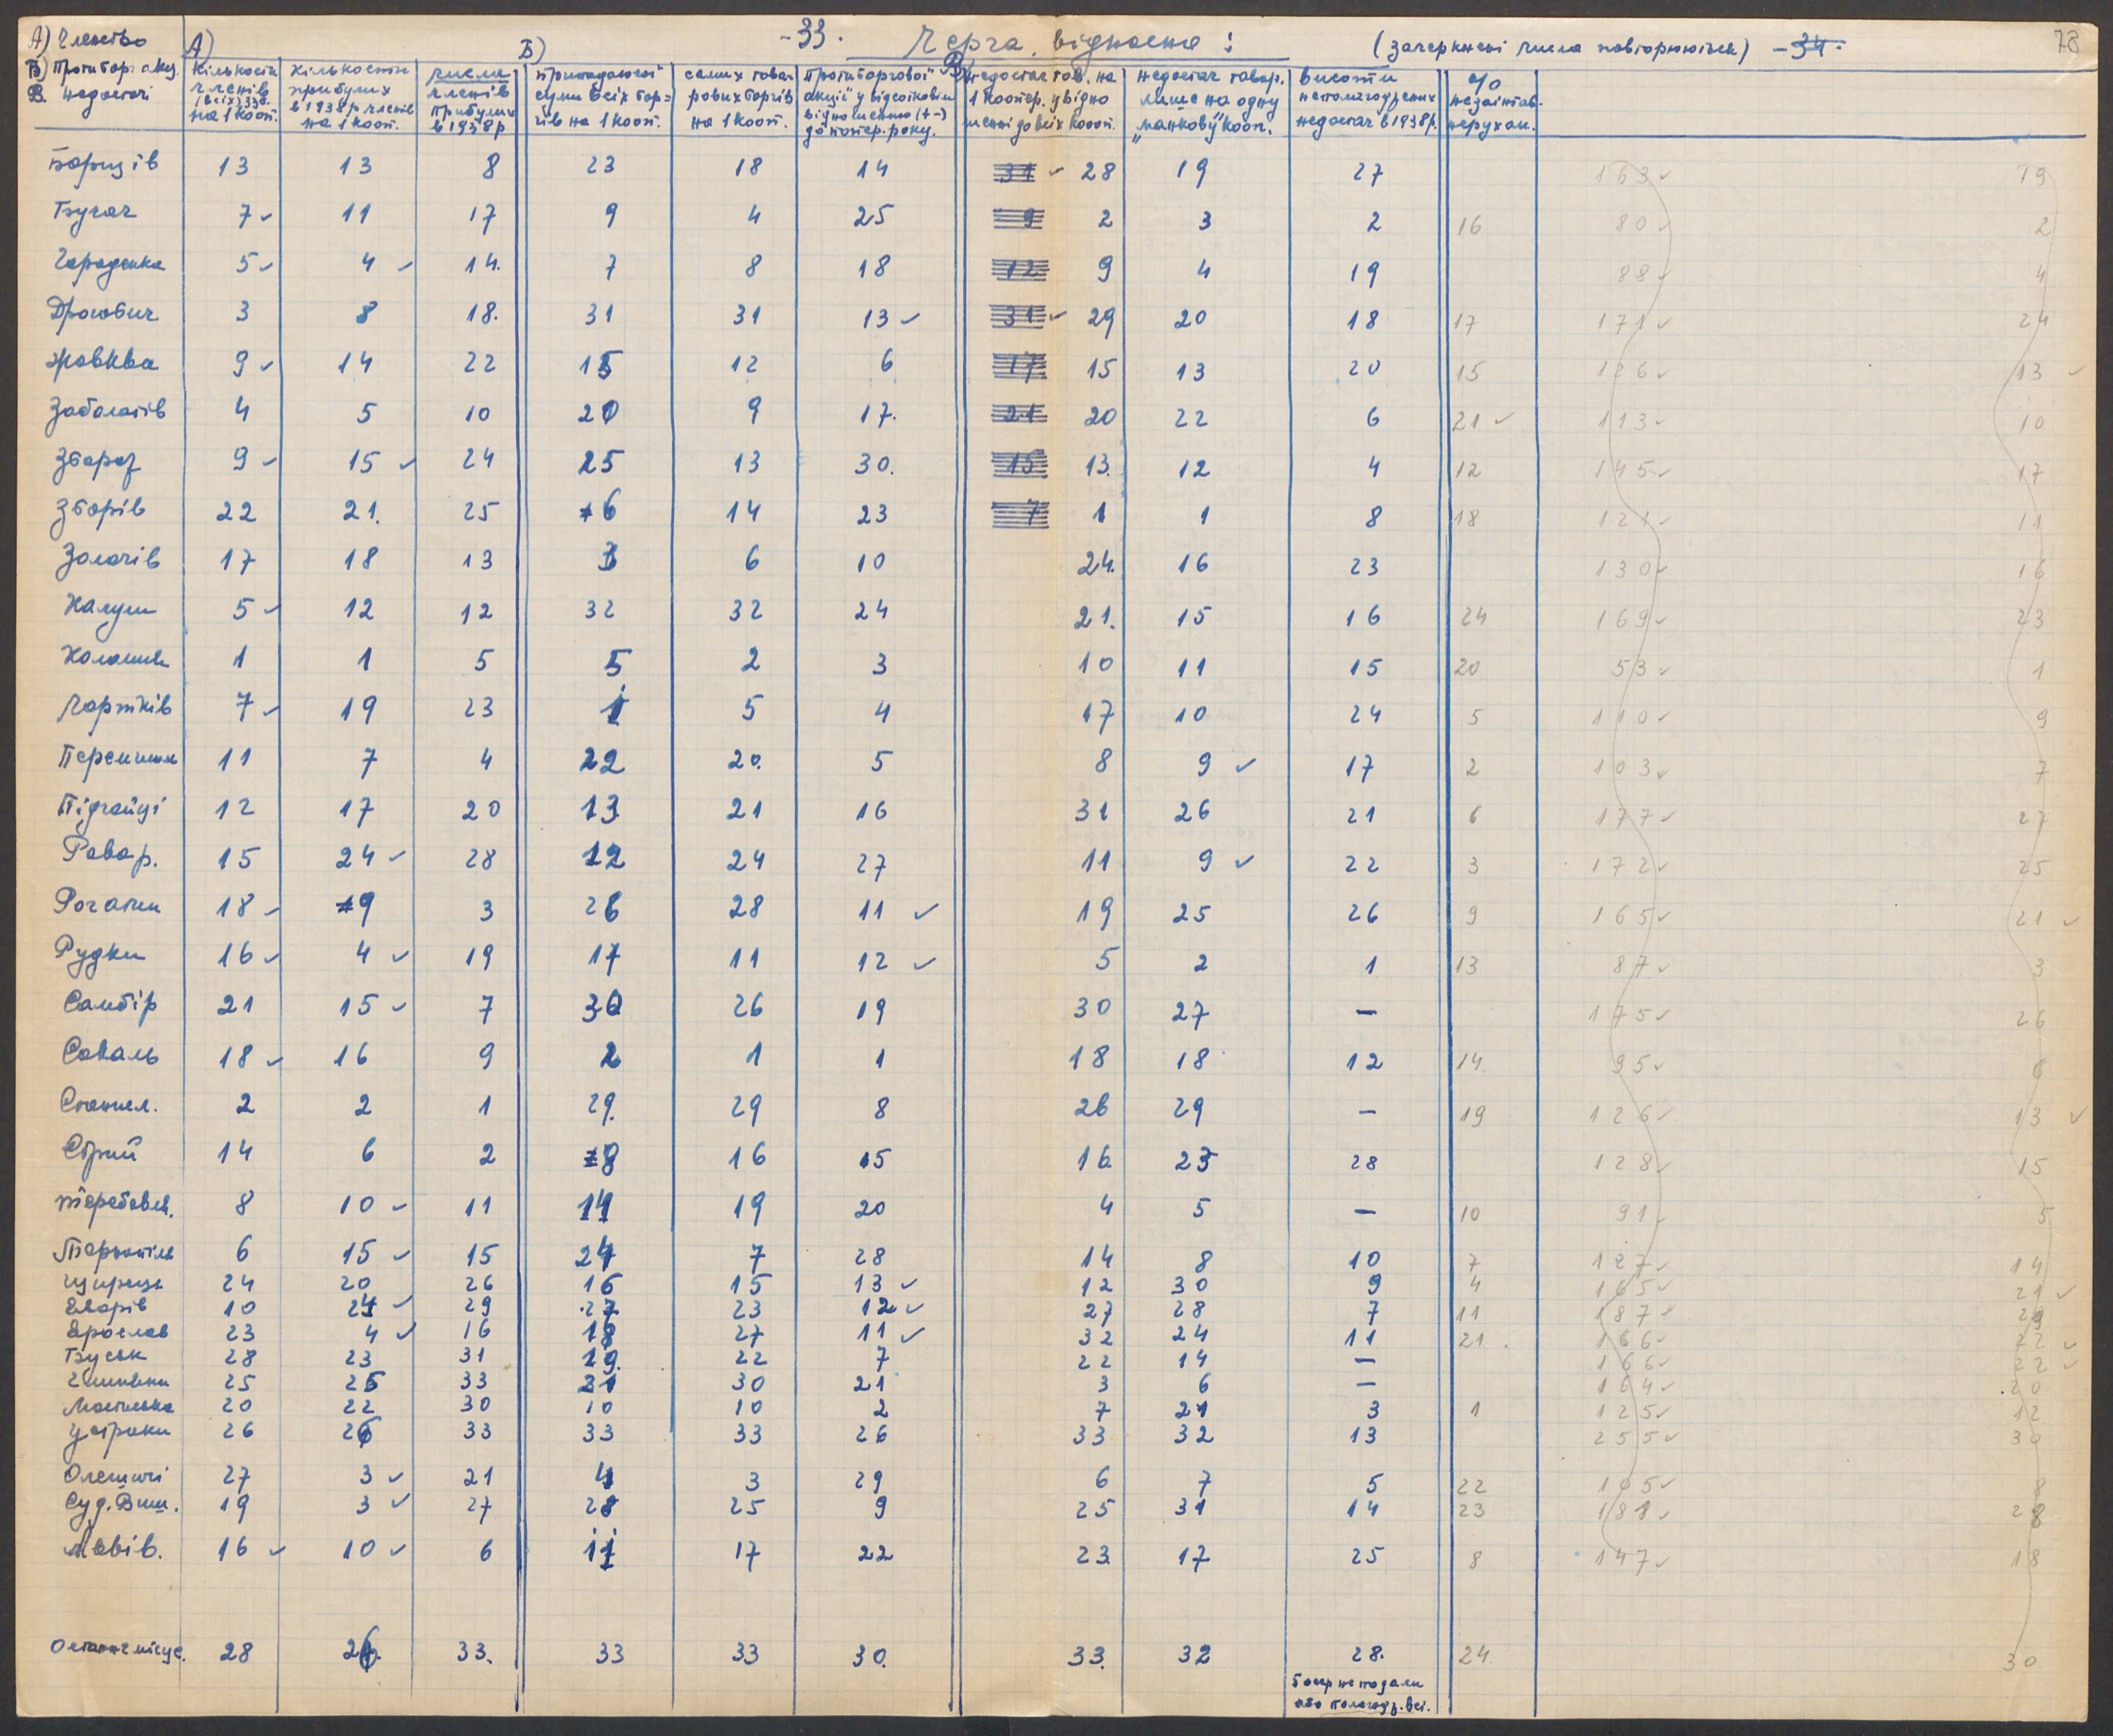 -33. Черга відносна: (зачеркнені числа повторюються) -34. 78
А) Членство
Б) Протиборг. акц.
В. недостачі
А) Б) В)
кількости членів (всіх) 33б. на 1 кооп.
кількости прибулих в 1938 р. членів на 1 кооп.
числа членів прибулих в 1938 р
припадаючої суми всіх боргів на 1 кооп.
самих товарових боргів на 1 кооп.
протиборгової акції у відсотковім відношенню (+-) до попер. року.
недостач тов. на 1 коопер. у відношенні до всіх кооп.
недостач товар. лише на одну „манкову" кооп.
висоти неполагоджених недостач в 1938 р.
% незаінтаб. нерухом.
Борщів 13 13 8 23 18 14 31 ✓ 28 19 27 163 ✓ 19
Бучач 7 ✓ 11 17 9 4 25 9 2 3 2 16 80 ✓ 2
Городенка 5 ✓ 4 ✓ 14. 7 8 18 12 9 4 19 88 ✓ 4
Дрогобич 3 8 18. 31 31 13 ✓ 31 ✓ 29 20 18 17 171 ✓ 24
Жовква 9 ✓ 14 22 15 12 6 17 15 13 20 15 126 ✓ 13 ✓
Заболотів 4 5 10 20 9 17. 21 20 22 6 21 ✓ 113 ✓ 10
Збараж 9 ✓ 15 ✓ 24 25 13 30. 15 13. 12 4 12 145 ✓ 17
Зборів 22 21. 25 6 14 23 7 1 1 8 18 121 ✓ 11
Золочів 17 18 13 3 6 10 24. 16 23 130 ✓ 16
Калуш 5 ✓ 12 12 32 32 24 21. 15 16 24 169 ✓ 23
Коломия 1 1 5 5 2 3 10 11 15 20 53 ✓ 1
Чортків 7 ✓ 19 23 1 5 4 17 10 24 5 110 ✓ 9
Перемишль 11 7 4 22 20. 5 8 9 ✓ 17 2 103 ✓ 7
Підгайці 12 17 20 13 21 16 31 26 21 6 177 ✓ 27
Рава р. 15 24 ✓ 28 12 24 27 11 9 ✓ 22 3 172 ✓ 25
Рогатин 18 ✓ 9 3 26 28 11 ✓ 19 25 26 9 165 ✓ 21 ✓
Рудки 16 ✓ 4 ✓ 19 17 11 12 ✓ 5 2 1 13 87 ✓ 3
Самбір 21 15 ✓ 7 30 26 19 30 27 — 175 ✓ 26
Сокаль 18 ✓ 16 9 2 1 1 18 18 12 14 95 ✓ 6
Станисл. 2 2 1 29. 29 8 26 29 — 19 126 ✓ 13 ✓
Стрий 14 6 2 8 16 15 16 23 28 128 ✓ 15
Теребовл. 8 10 ✓ 11 14 19 20 4 5 — 10 91 ✓ 5
Тернопіль 6 15 ✓ 15 24 7 28 14 8 10 7 127 ✓ 14
Щирець 24 20 26 16 15 13 ✓ 12 30 9 4 165 ✓ 21 ✓
Яворів 10 24 ✓ 29 27 23 12 ✓ 27 28 7 11 187 ✓ 29
Ярослав 23 4 ✓ 16 18 27 11 ✓ 32 24 11 21. 166 ✓ 22 ✓
Буськ 28 23 31 19. 22 7 22 14 — 166 ✓ 22 ✓
Глиняни 25 25 33 21 30 21 3 6 — 164 ✓ 20
Мостиська 20 22 30 10 10 2 7 21 3 1 125 ✓ 12
Устрики 26 26 33 33 33 26 33 32 13 255 ✓ 30
Олешичі 27 3 ✓ 21 4 3 29 6 7 5 22 105 ✓ 8
Суд. Виш. 19 3 ✓ 27 28 25 9 25 31 14 23 181 ✓ 28
Львів. 16 ✓ 10 ✓ 6 11 17 22 23 17 25 8 147 ✓ 18
Останнє місце. 28 26. 33. 33 33 30. 33. 32 28. 24 30
5 окр не подали
або полагодж. всі.